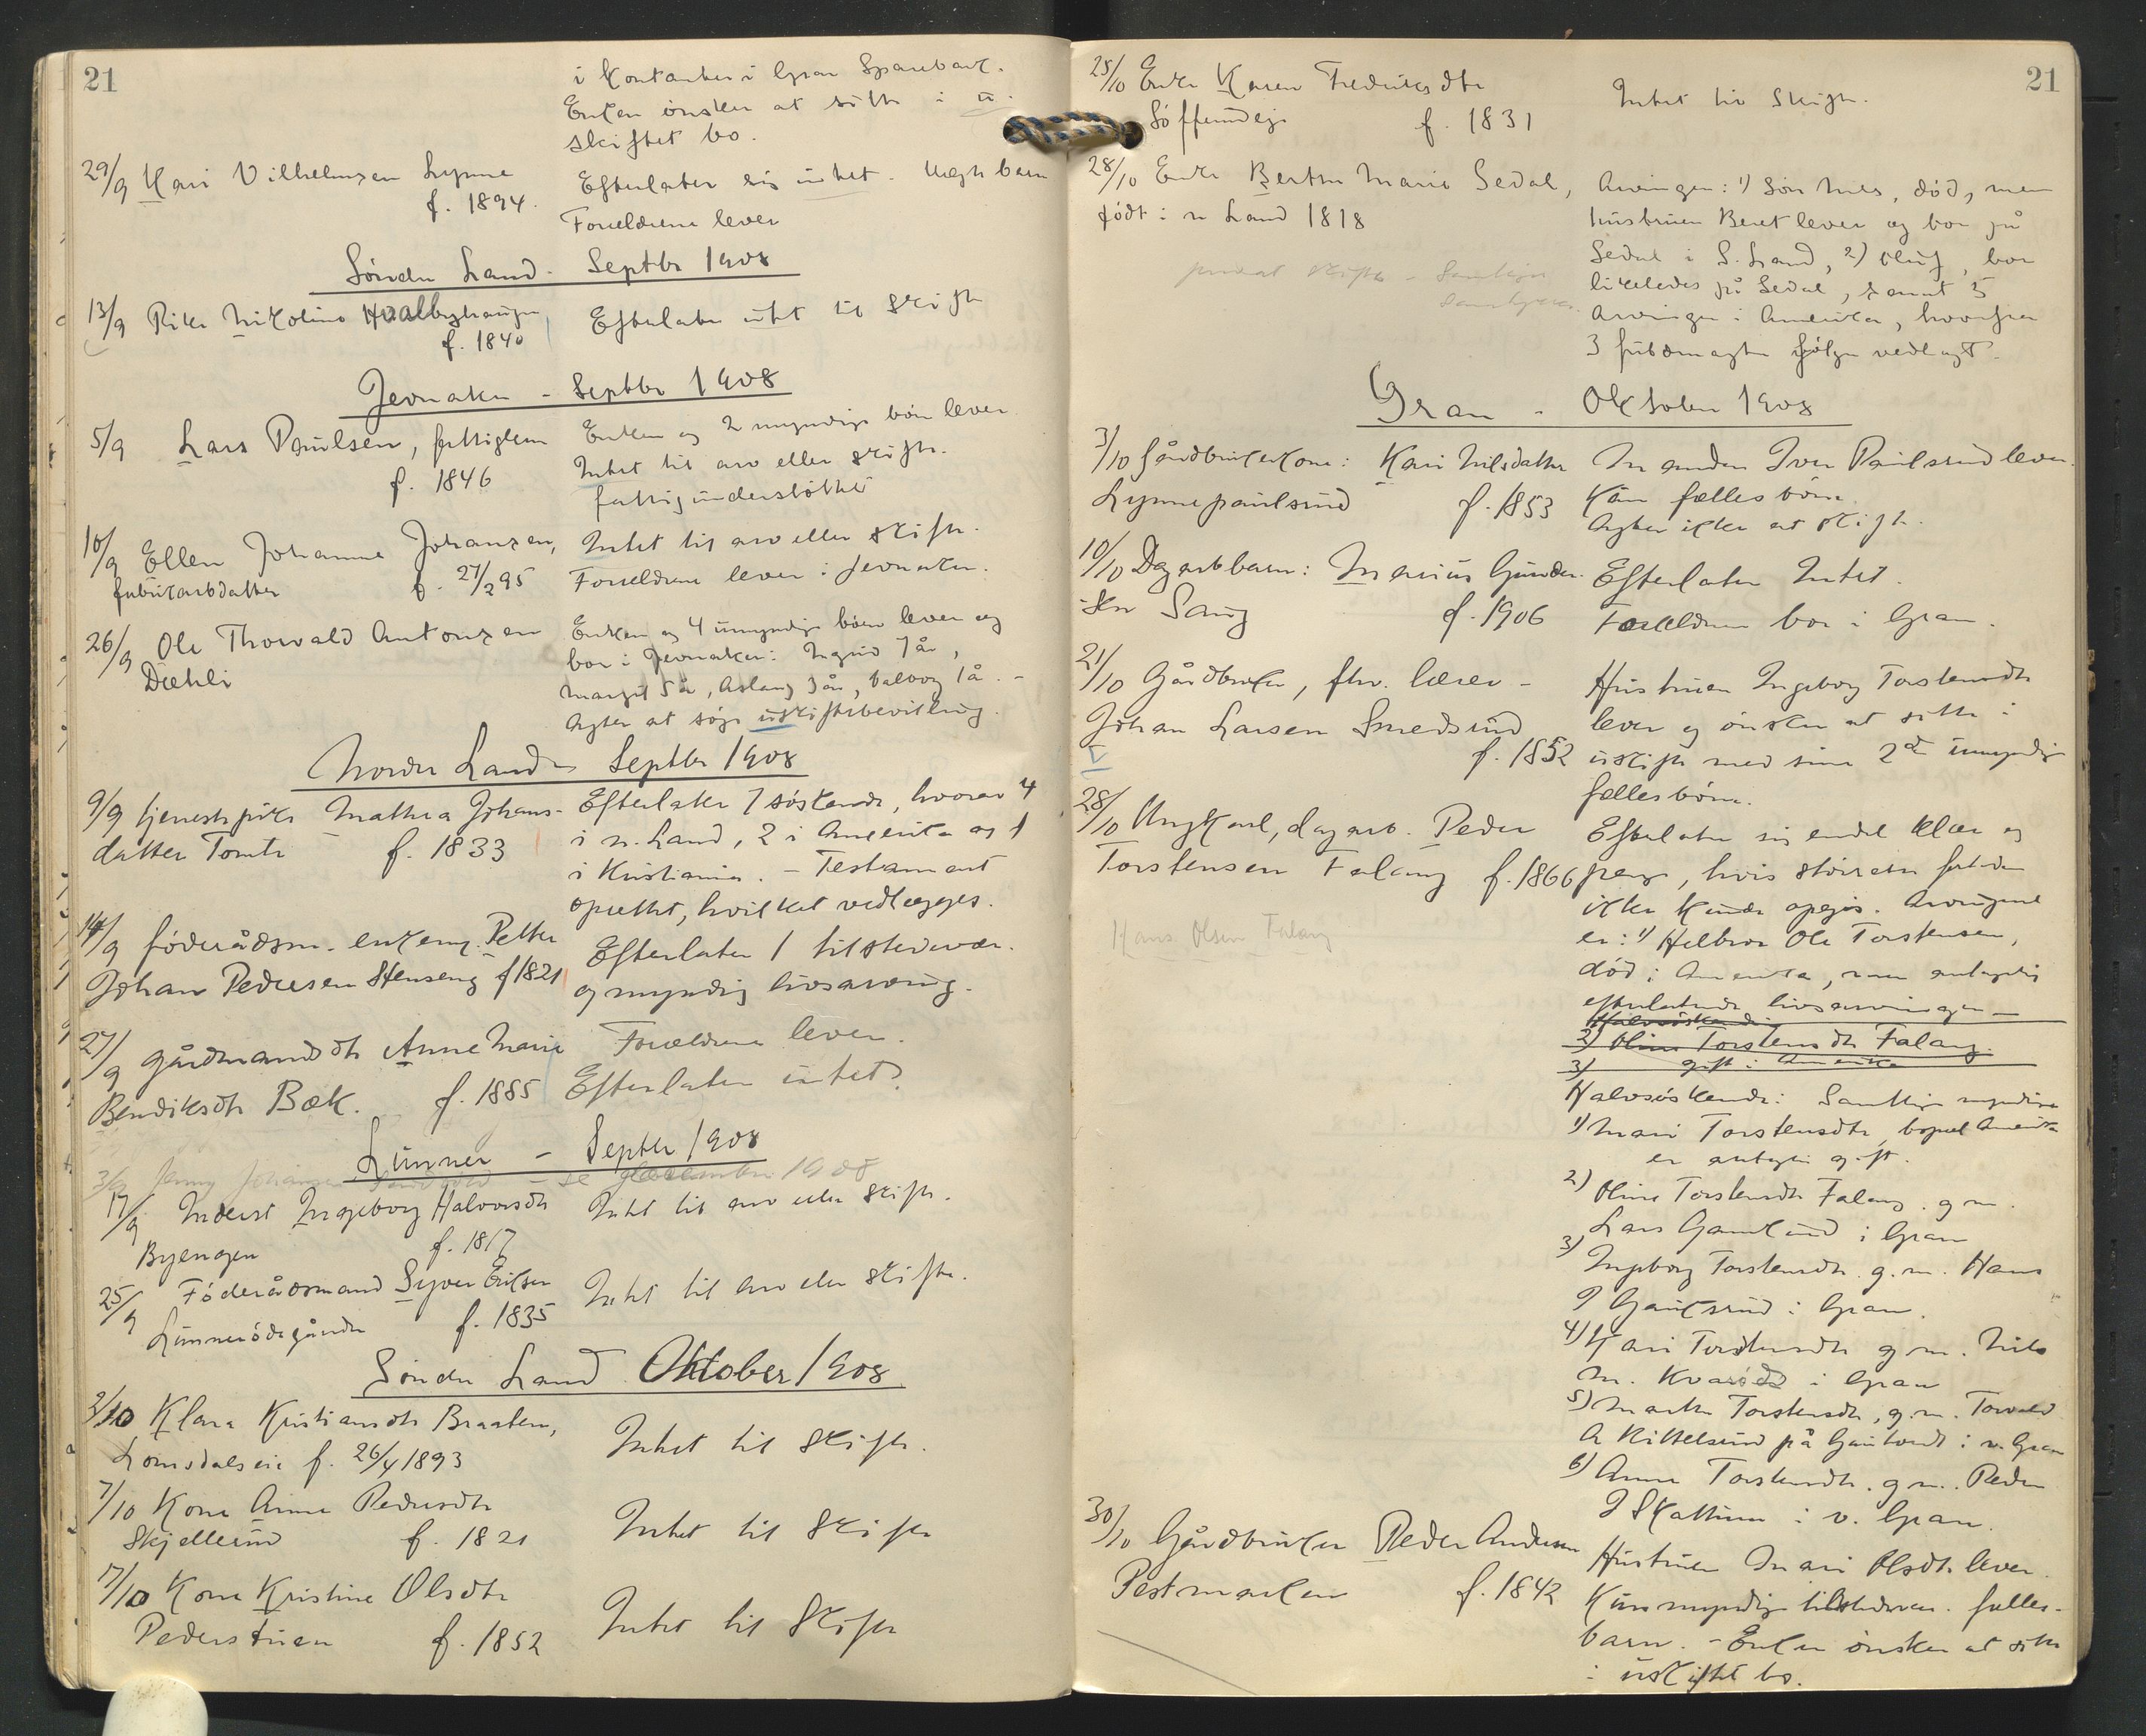 21
i Kontanter i Gran Sparebank.
Enken ønsker at sitte i u-
skiftet bo.
29/9 Kari Vilhelmsen Lynne
f. 1894.
Efterlater sig intet. Uægte barn
Forældrene lever
Søndre Land - Septbr 1908
13/9 Pike Nikoline Hvalbyhaugen
f. 1840
Efterlater intet til skifte
Jevnaker - Septbr 1908
5/9 Lars Paulsen, fattiglem
f. 1846
Enken og 2 myndige børn lever
Intet til arv eller skifte.
fattigunderstøttet
10/9 Ellen Johanne Johansen,
fabrikarbdatter f. 27/2 95
Intet til arv eller skifte.
Forældrene lever i Jevnaker.
26/9 Ole Thorvald Antonsen
Dæhli
Enken og 4 umyndige børn lever og
bor i Jevnaker: Ingrid 7 år,
Margit 5 år, Aslaug 3 år, Valborg 1 å. -
Agter at søge uskiftebevilling.
Nordre Land - Septbr 1908
9/9 tjenestepike Mathea Johans-
datter Tomte f. 1833
Efterlater 7 søskende, hvorav 4
i n. Land, 2 i Amerika og 1
i Kristiania. - Testament
oprettet, hvilket vedlægges.
14/9 føderådsm. enkem. Petter
Johan Pedersen Stenseng f 1821
Efterlater 1 tilstedevær.
og myndig livsarving.
27/9 gårdmandsdtr Anne Marie
Bendiksdtr Bæk. f. 1885
Forældrene lever.
Efterlater intet.
Lunner - Septbr 1908
3/9 Jenny Johansen - se december 1908
17/9 Inderst Ingeborg Halvorsdtr
Byengen f. 1817
Intet til arv eller skifte.
25/9 Føderådsmand Syver Eriksen
Lunnerødegården f. 1835
Intet til arv eller skifte.
Søndre Land Oktober 1908
2/10 Klara Kristiansdtr Braaten,
Lomsdalseie f. 26/4 1893
Intet til skifte.
7/10 Kone Anne Pedersdtr
Skjellerud f. 1821
Intet til skifte
17/10 Kone Kristine Olsdtr
Pederstuen f. 1852
Intet til skifte
21
25/10 Enke Karen Fredriksdtr
Søffendeie f. 1831
Intet til skifte.
28/10 Enke Berthe Marie Sedal,
født i n Land 1818
privat skifte - Samtige
samtykker
Arvinger: 1) Søn Nils, død, men
hustruen Beret lever og bor på
Sedal i S. Land, 2) Oluf, bor
likeledes på Sedal, samt 5
arvinger i Amerika, hvorfra
3 fuldmagter følger vedlagt.
Gran - Oktober 1908
3/10 Gårdbrukerkone: Kari Nilsdatter
Lynnepaulsrud f. 1853
Manden Iver Paulsrud lever.
Kun fællesbørn.
Agter ikke at skifte.
10/10 Dagarbbarn: Marius Gunder-
sen Sang f. 1906
Efterlater Intet.
Forældrene bor i Gran.
21/10 Gårdbruker, fhv. lærer -
Johan Larsen Smedsrud
f. 1852
Hustruen Ingeborg Torstensdtr
lever og ønsker at sitte i
uskifte med sine 2de umyndige
fællesbørn.
28/10 Ungkarl, dagarb. Peder
Torstensen Falang f. 1866
Hans Olsen Falang
Efterlater sig endel klær og
penge, hvis størrelse fortiden
ikke kunde opgis. Arvingene
er: 1) Helbror Ole Torstensen,
død i Amerika, men antagelig
efterlatende livsarvinger -
Halvsøskende
2) Oline Torstensdtr Falang.
3) gift i Amerika
Halvsøskende: Samtlige myndige
1) Mari Torstensdtr, bopæl Amerika
er antagelig gift.
2) Oline Torstensdtr Falang. g m.
Lars Gamlund i Gran
3) Ingborg Torstensdtr. g. m. Hans
I Gauksrud i Gran.
4) Kari Torstensdtr g m. Nils
M. Kvarød i Gran
5) Marthe Torstensdtr, g. m. Torvald
A Kittelsrud på i v. Gran
6) Anne Torstensdtr. g m. Peder
I Skattum i v. Gran.
30/10 Gårdbruker Peder Andersen
Pestmarken f. 1842
Hustruen Mari Olsdtr lever.
Kun myndige tilstedevær. fælles-
barn. - Enken ønsker at sitte
i uskiftet bo.